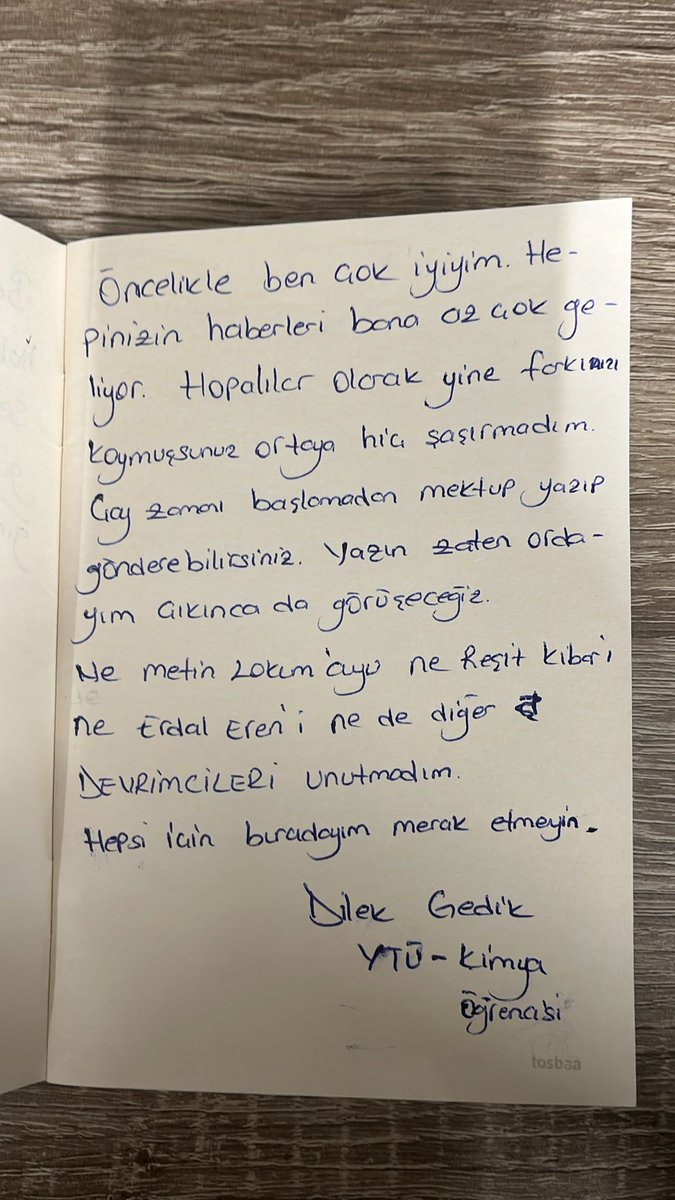 Öncelikle ben çok iyiyim. He-
pinizin haberleri bana az çok ge-
liyor. Hopalılar olarak yine farkınızı
koymuşsunuz ortaya hiç şaşırmadım.
Çay zamanı başlamadan mektup yazıp
gönderebilirsiniz. Yazın zaten orda-
yım çıkınca da görüşeceğiz.
Ne Metin Lokumcuyu ne Reşit Kibar'ı
ne Erdal Eren'i ne de diğer
DEVRİMCİLERİ unutmadım.
Hepsi için buradayım merak etmeyin.
Dilek Gedik
YTÜ - Kimya
Öğrencisi
tosbaa